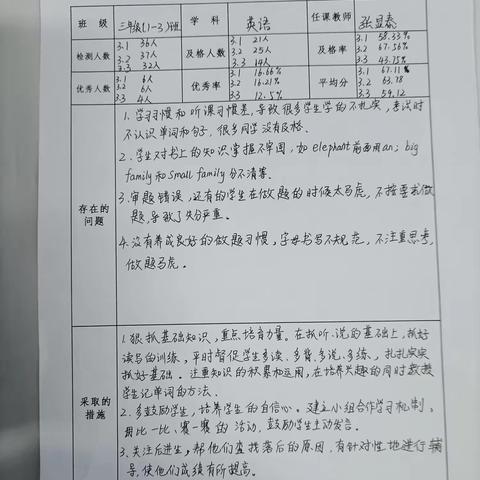 班 级 三年级(1-3)班 学 科 英语 任课教师 张显春
检测人数 3.1 36人 3.2 37人 3.3 32人 及格人数 3.1 21人 3.2 25人 3.3 14人 及格率 3.1 58.33% 3.2 67.56% 3.3 43.75%
优秀人数 3.1 6人 3.2 6人 3.3 4人 优秀率 3.1 16.66% 3.2 16.21% 3.3 12.5% 平均分 3.1 67.11 3.2 63.78 3.3 59.12
存在的问题
1.学习习惯和听课习惯差,导致很多学生学的不扎实,考试时
不认识单词和句子,很多同学没有及格.
2.学生对书上的知识掌握不牢固,如elephant前面用an; big
family和small family分不清等.
3.审题错误,还有的学生在做题的时候太马虎,不按要求做
题,导致了失分严重.
4.没有养成良好的做题习惯,字母书写不规范,不注重思考,
做题马虎.
采取的措施
1.狠抓基础知识,重点培育力量.在抓听、说的基础上,抓好
读写的训练,平时督促学生多读、多背、多说、多练,扎扎实实
抓好基础.注重知识的积累和运用,在培养兴趣的同时教授
学生记单词的方法.
2.多鼓励学生,培养学生的自信心.建立小组合作学习机制,
用比一比、赛一赛的活动,鼓励学生主动发言.
3.关注后进生,帮他们查找落后的原因,有针对性地进行辅
导,使他们成绩有所提高.